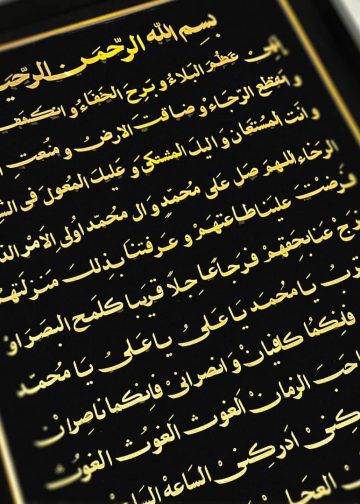 بِسمِ اللهِ الرَّحمَنِ الرَّحيم
اِلهى عَظُمَ البَلاءُ وَ بَرِحَ الخَفَاءُ وَ انكَشَفَ
وَ انقَطَعَ الرَّجاءُ وَ ضاقَتِ الاَرضُ وَ مُنِعَتِ
وَ اَنتَ المُستَعانُ وَ اِلَيكَ المُشتَكى وَ عَلَيكَ المُعَوَّلُ فِى
الرَّخاءِ اللهمَّ صَلِّ عَلى مُحَمَّدٍ وَ آلِ مُحَمَّد اُولِى الاَمْرِ
فَرَضْتَ عَلَينا طاعَتَهُمْ وَ عَرَّفتَنا بِذلِكَ مَنزِلَتَهُمْ
عَنّا بِحَقِّهِمْ فَرَجاً عاجِلاً قَريباً كَلَمحِ البَصَرِ اَوْ
يا مُحَمَّد يا عَلىُّ يا عَلىُّ يا مُحَمَّد
فَاِنَّكُما كافِيانْ وَ انصُرانى فَاِنَّكُما ناصِرانْ
صاحِبَ الزَّمانْ اَلغَوثَ الغَوثَ الغَوثْ
اَدرِكنى السّاعَة السّاعَة
العَجَل